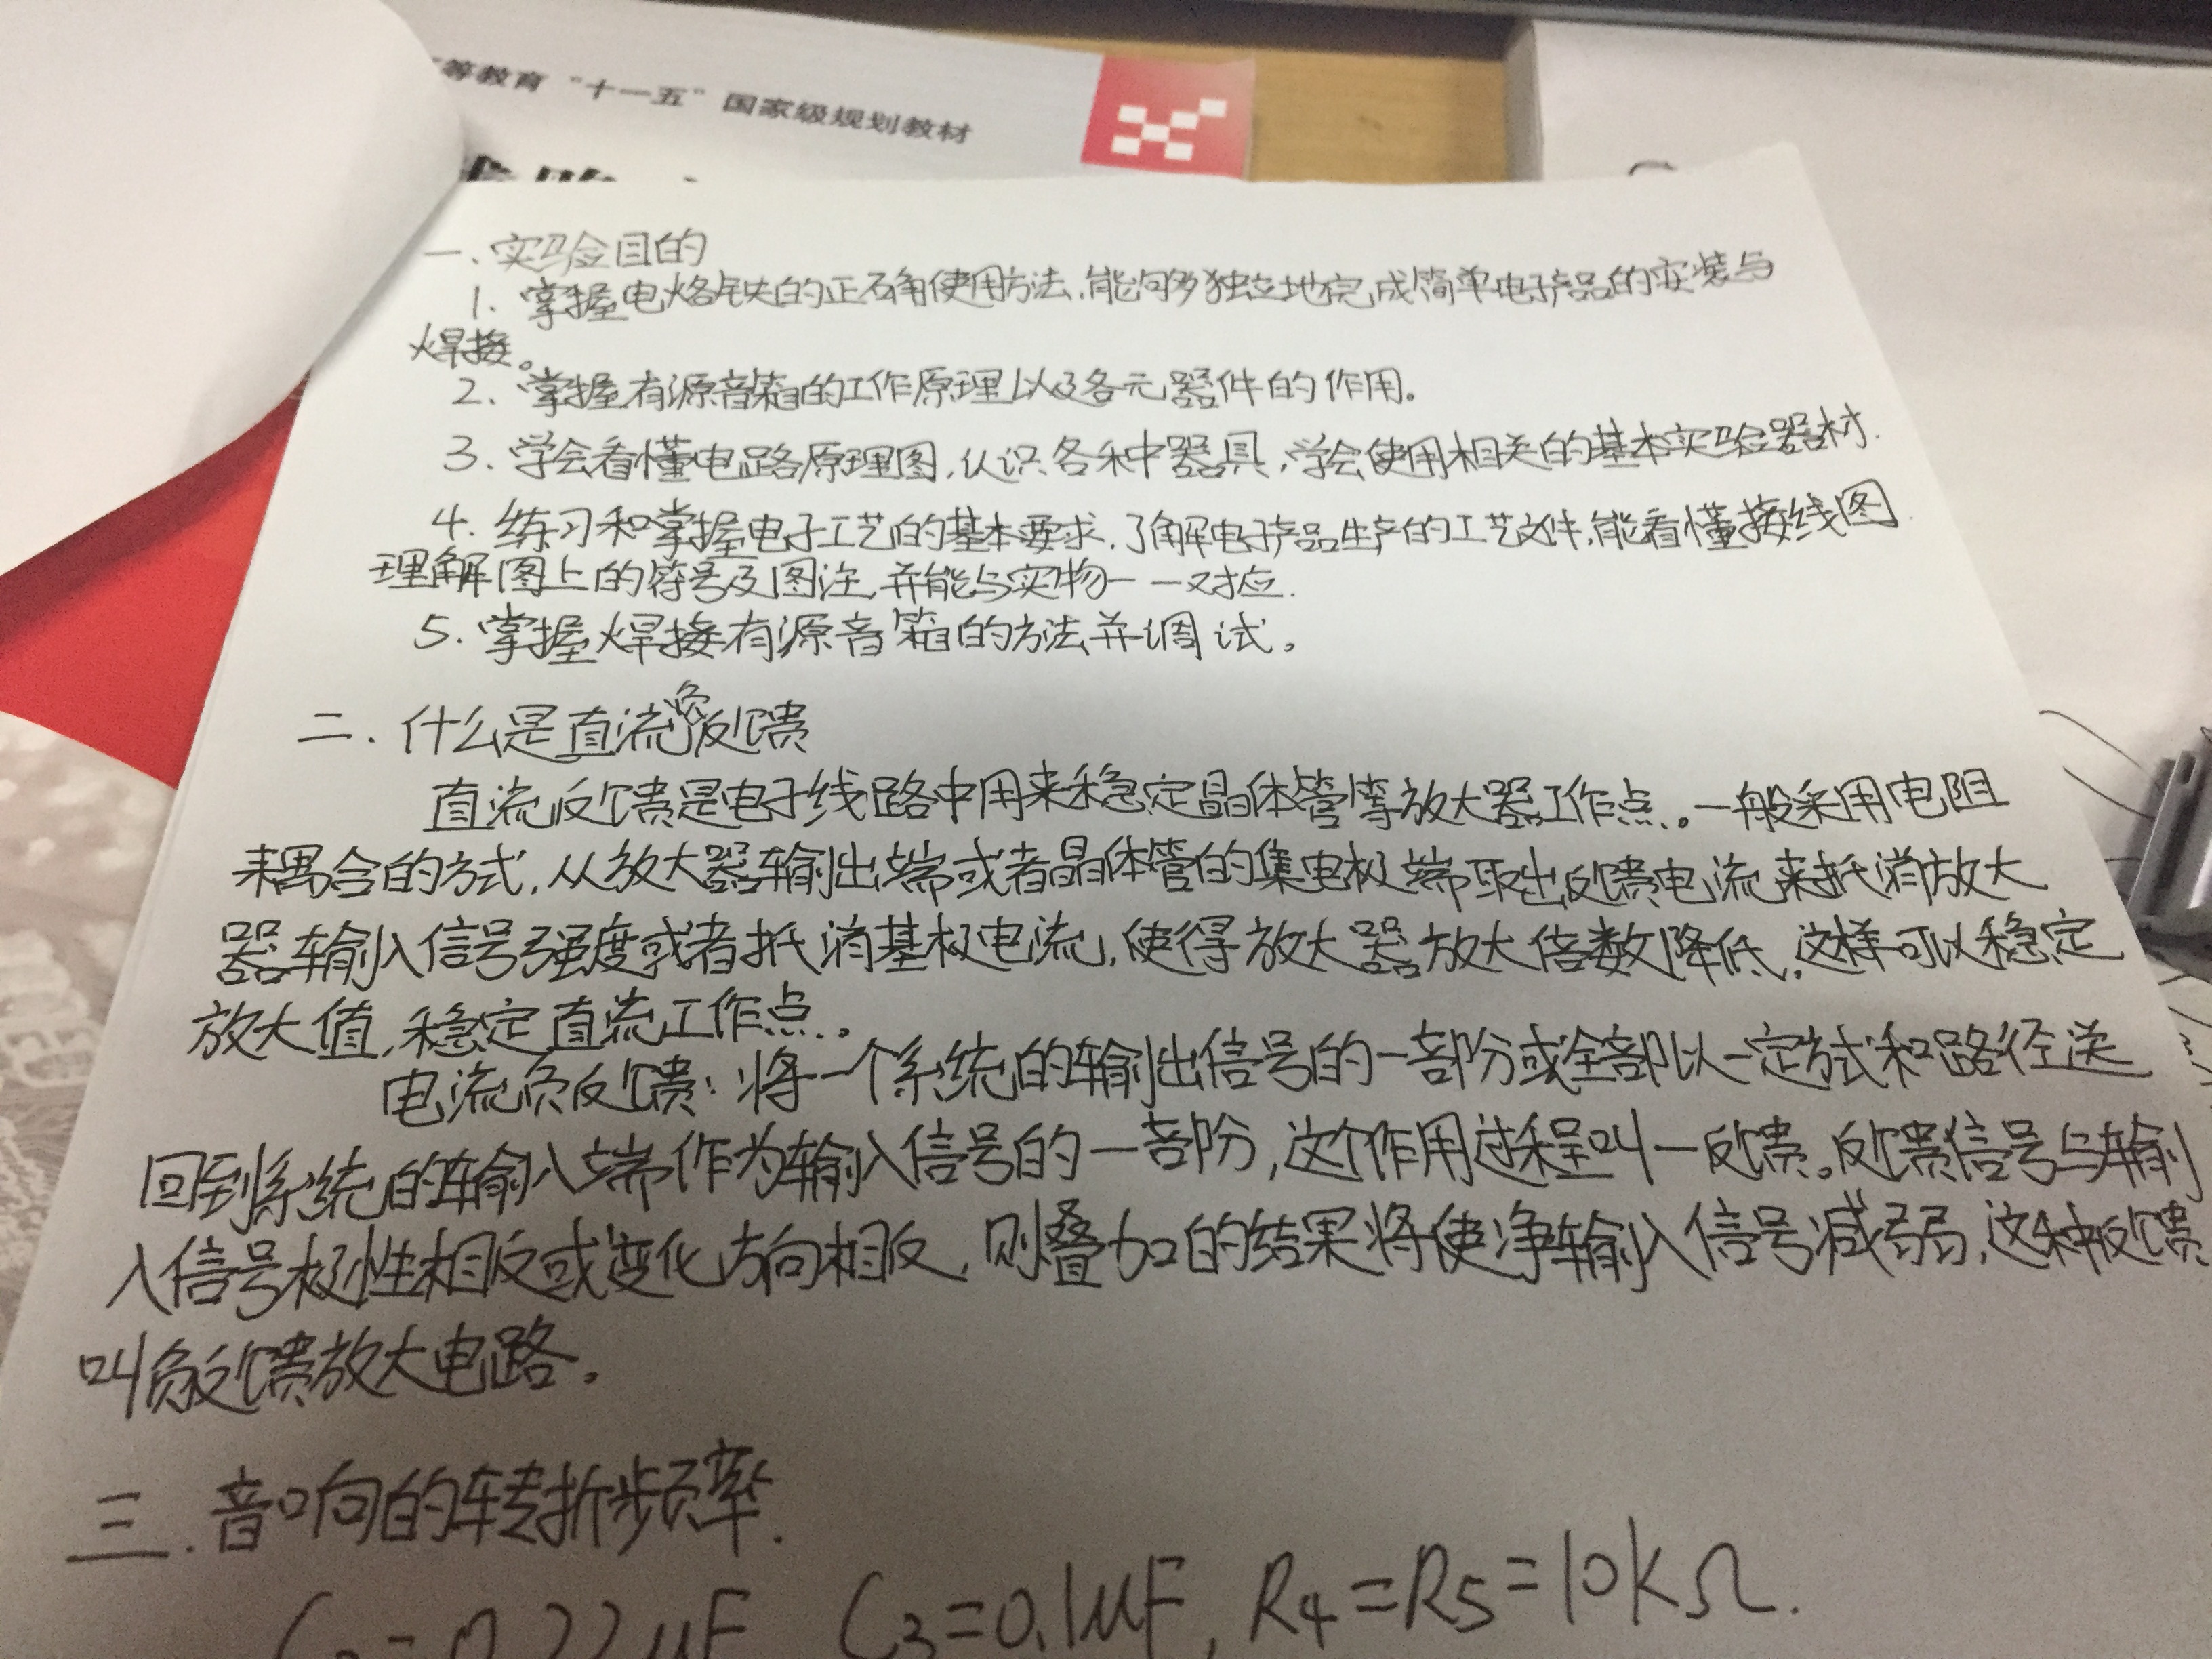 等教育“十一五”国家级规划教材
一.实验目的
1. 掌握电烙铁的正确使用方法,能够独立地完成简单电子产品的安装与
焊接。
2. 掌握有源音箱的工作原理以及各元器件的作用。
3. 学会看懂电路原理图,认识各种器具,学会使用相关的基本实验器材.
4. 练习和掌握电子工艺的基本要求,了解电子产品生产的工艺文件,能看懂接线图
理解图上的符号及图注,并能与实物一一对应.
5. 掌握焊接有源音箱的方法并调试。
二.什么是直流负反馈
直流反馈是电子线路中用来稳定晶体管等放大器工作点。一般采用电阻
耦合的方式,从放大器输出端或者晶体管的集电极端取出反馈电流来抵消放大
器输入信号强度或者抵消基极电流,使得放大器放大倍数降低,这样可以稳定
放大值,稳定直流工作点。
电流负反馈:将一个系统的输出信号的一部份或全部以一定方式和路径送
回到系统的输入端作为输入信号的一部份,这个作用过程叫一反馈。反馈信号与输
入信号极性相反或变化方向相反,则叠加的结果将使净输入信号减弱,这种反馈
叫负反馈放大电路。
三.音响的转折频率.
C₃=0.1μF, R₄=R₅=10kΩ.